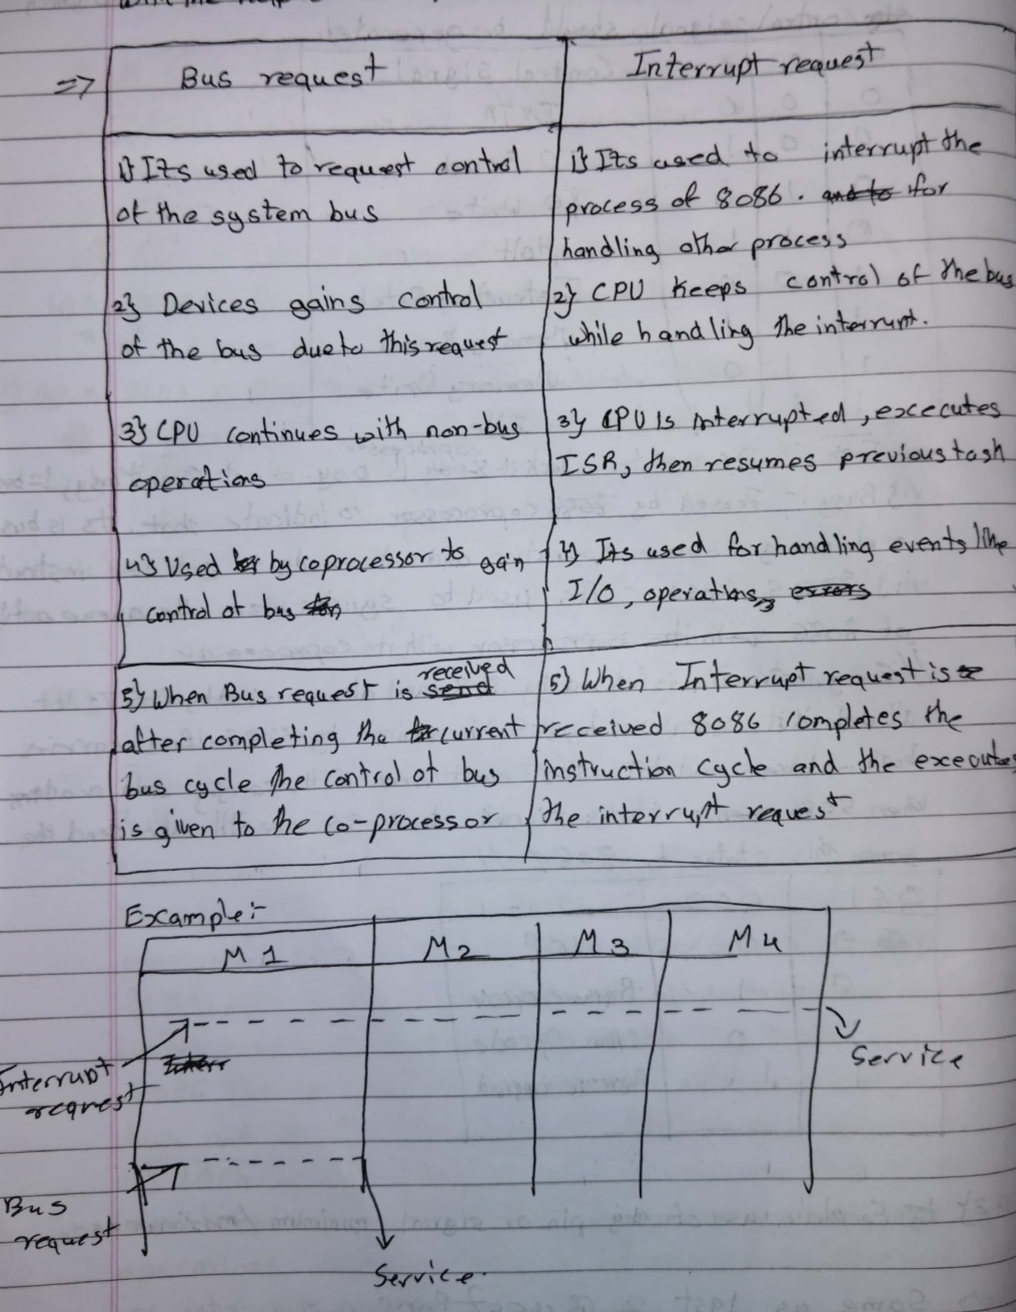 => Bus request
Interrupt request
1} Its used to request control
of the system bus
1} Its used to interrupt the
process of 8086. and to for
handling other process
2} Devices gains control
of the bus due to this request
2} CPU keeps control of the bus
while handling the interrupt.
3} CPU continues with non-bus
operations
3} CPU Is interrupted, excecutes
ISR, then resumes previous task
4} Used by coprocessor to gain
control of bus
4} Its used for handling events like
I/O, operations, errors
5} When Bus request is send received
after completing the current
bus cycle the control of bus
is given to the co-processor
5) When Interrupt request is
received 8086 completes the
instruction cycle and the executes
the interrupt request
Example:-
M1 M2 M3 M4
Interrupt
request
Service
Bus
request
Service.